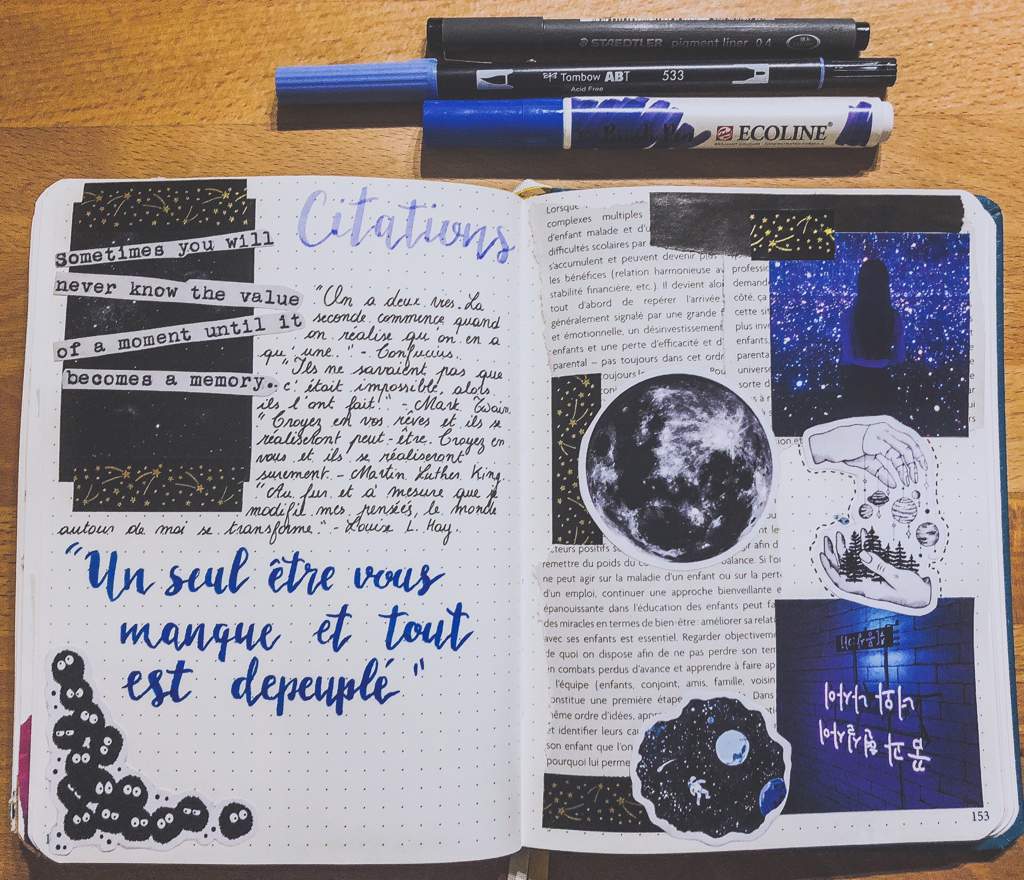 STAEDTLER pigment liner 0.4
Tombow ABT 533
Acid Free
Brush Pen ECOLINE
Citations
Sometimes you will
never know the value
of a moment until it
becomes a memory.
"On a deux vies. La
seconde commence quand
on réalise qu'on en a
qu'une." - Confucius.
"Ils ne savaient pas que
c'était impossible, alors
ils l'ont fait!" - Mark Twain.
"Croyez en vos rêves et ils se
réaliseront peut-être. Croyez en
vous et ils se réaliseront
surement. - Martin Luther King.
"Au fur et à mesure que je
modifie mes pensées, le monde
autour de moi se transforme." - Louise L. Hay.
"Un seul être vous
manque et tout
est depeuplé"
Lorsque
complexes multiples
d'enfant malade et d'u
difficultés scolaires par
s'accumulent et peuvent devenir plus
les bénéfices (relation harmonieuse av
stabilité financière, etc.). Il devient alo
tout d'abord de repérer l'arrivée
généralement signalé par une grande f
et émotionnelle, un désinvestissement
enfants et une perte d'efficacité et d'
parental – pas toujours dans cet ordr
toujours
professi
demand
côté, ça
cette sit
plus inve
enfants,
parenta
universe
sorte d
cteurs positifs
remettre du poids du
balance. Si l'o
ne peut agir sur la maladie d'un enfant ou sur la perte
d'un emploi, continuer une approche bienveillante e
épanouissante dans l'éducation des enfants peut fa
des miracles en termes de bien-être : améliorer sa relat
avec ses enfants est essentiel. Regarder objectiveme
de quoi on dispose afin de ne pas perdre son tem
en combats perdus d'avance et apprendre à faire ap
l'équipe (enfants, conjoint, amis, famille, voisin
constitue une première étape
Dans
même ordre d'idées, appr
et identifier leurs cau
son enfant que l'on
pourquoi lui perme
153